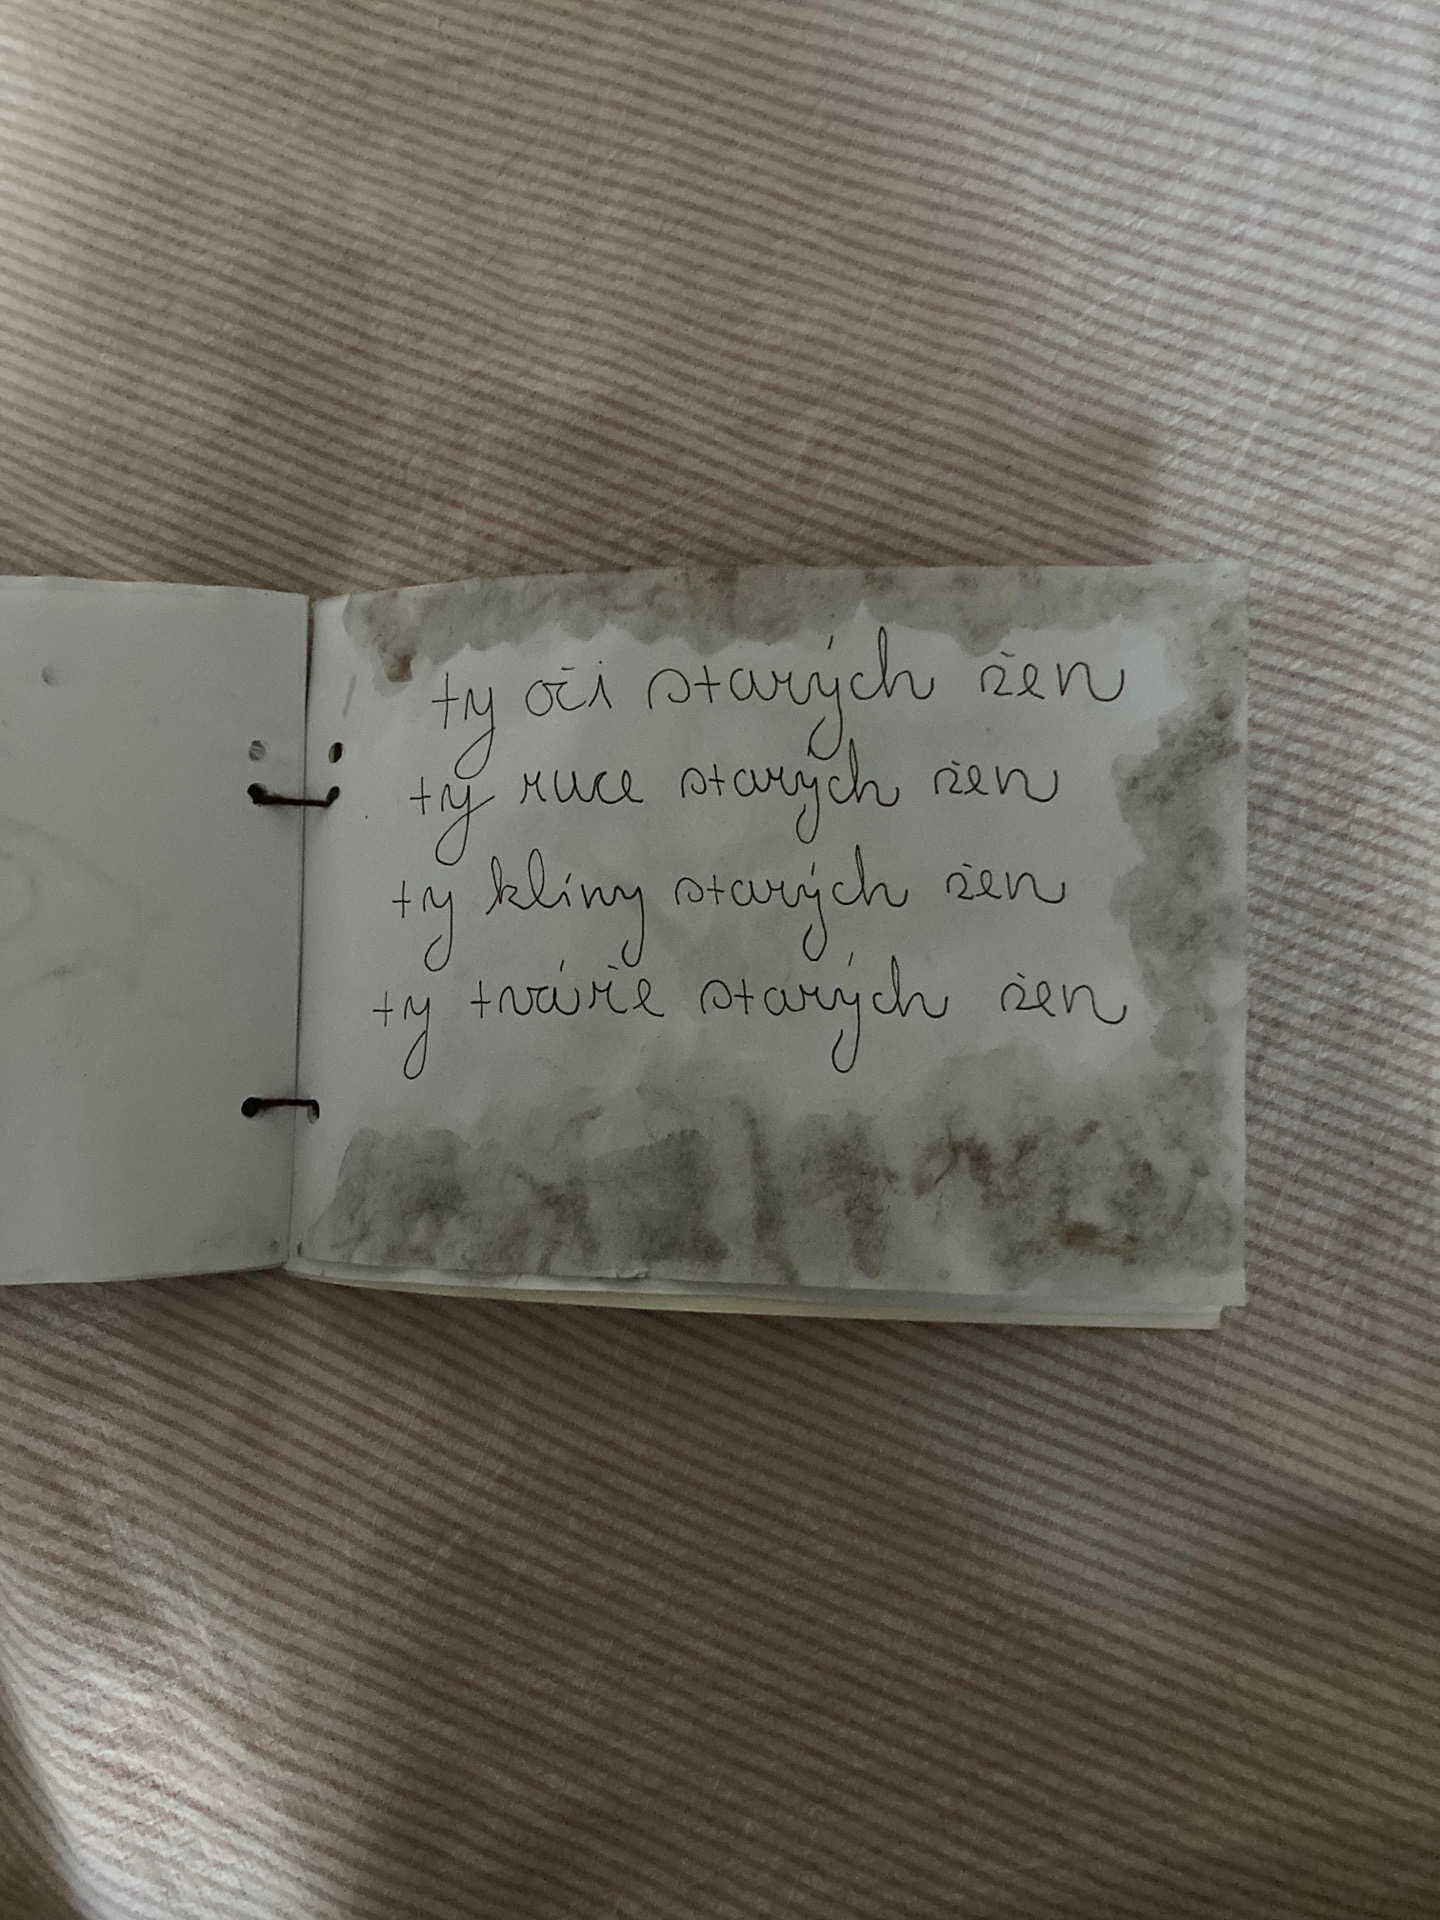 ty oči starých žen
ty ruce starých žen
ty klíny starých žen
ty tváře starých žen